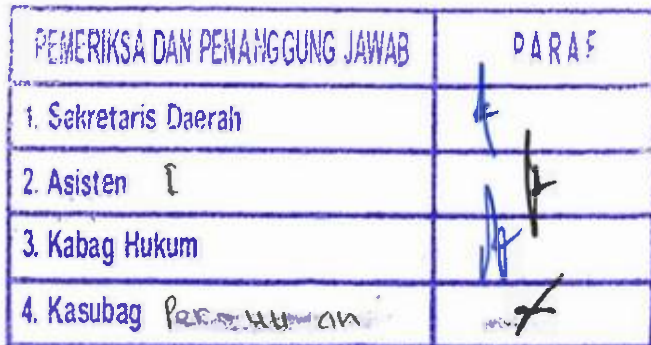 PEMERIKSA DAN PENANGGUNG JAWAB PARAF
1. Sekretaris Daerah
2. Asisten I
3. Kabag Hukum
4. Kasubag